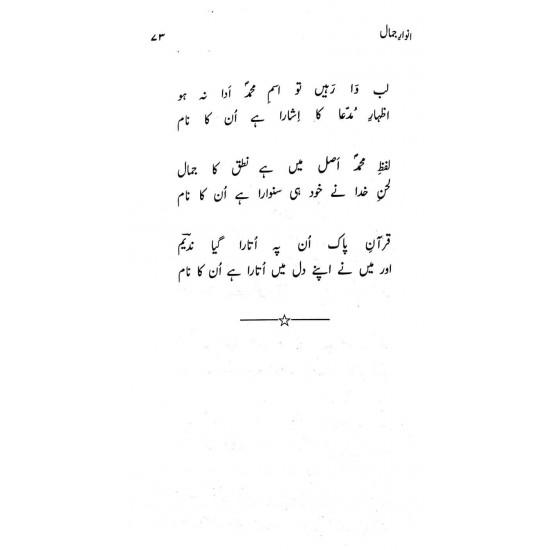 انوارِ جمال
۷۳
لب وَا رَہیں تو اسمِ محمدؐ اَدا نہ ہو
اظہارِ مُدّعا کا اِشارا ہے اُن کا نام
لفظِ محمدؐ اَصل میں ہے نطق کا جمال
لحنِ خدا نے خود ہی سنوارا ہے اُن کا نام
قرآنِ پاک اُن پہ اُتارا گیا ندیمؔ
اور میں نے اپنے دل میں اُتارا ہے اُن کا نام